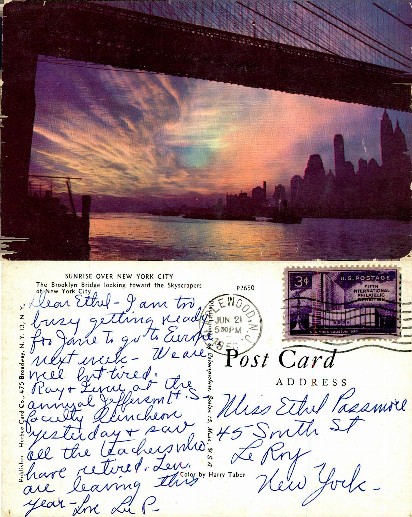 SUNRISE OVER NEW YORK CITY
The Brooklyn Bridge looking toward the Skyscrapers
of New York City
P2650
Dear Ethel - I am too
busy getting ready
for Janie to go to Europe
next week - We are
well but tired.
Ray & Lena at the
annual Jefferson H.S.
faculty luncheon
yesterday & saw
all the teachers who
have retired. Len.
are leaving this
year - Love Lu P.
Publisher: Herbco Card Co., 675 Broadway, N. Y. 12, N. Y.
Color by Harry Taber
LEWOOD, N.J.
JUN 21
5 30 PM
3¢
U.S. POSTAGE
FIFTH
INTERNATIONAL
PHILATELIC
Post Card
ADDRESS
Miss Ethel Passmore
45 South St
Le Roy
New York -